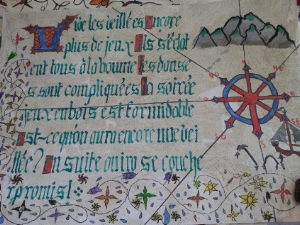 Vive les veillées encore
plus de jeux Ils s'éclat
ent tous à la bourrée les danse
s sont compliquées la soirée
jeux en bois est formidable
Est-ce qu'on aura encore une vei
llée? Ensuite on ira se couche
r promis!